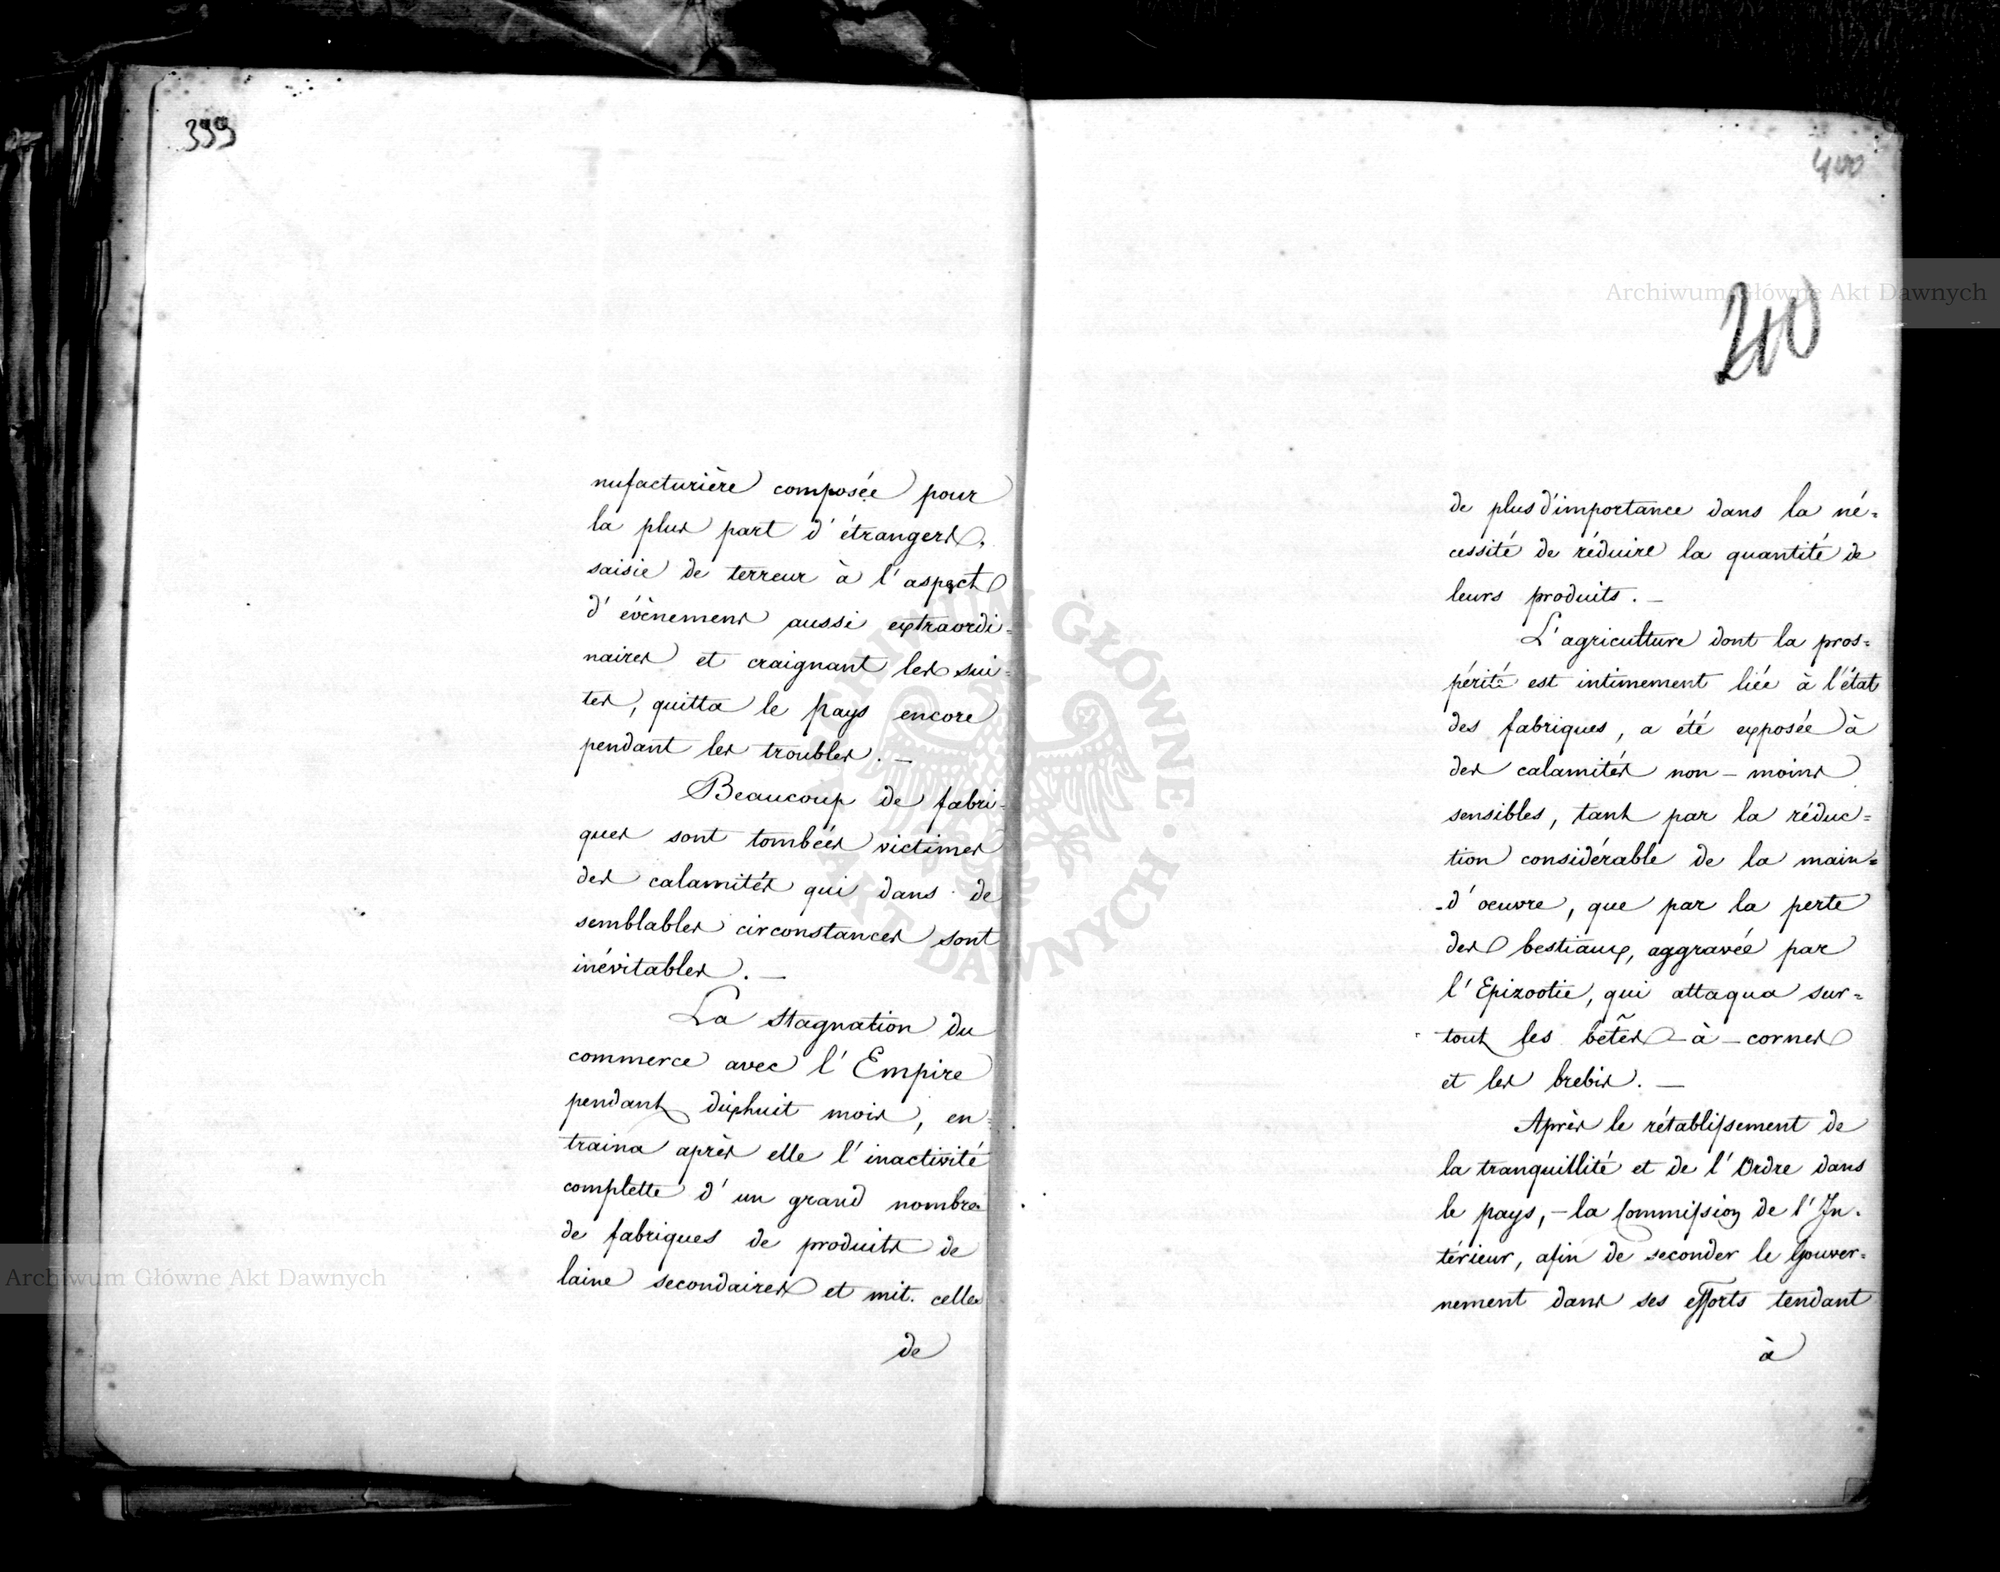 399
nufacturière composée pour
la plus part d'étrangers,
saisie de terreur à l'aspect
d'événemens aussi extraordi-
naires et craignant les sui-
tes, quitta le pays encore
pendant les troubles. —
Beaucoup de fabri-
ques sont tombées victimes
des calamités qui dans de
semblables circonstances sont
inévitables. —
La stagnation du
commerce avec l'Empire
pendant dixhuit mois, en-
traina après elle l'inactivité
complette d'un grand nombre
de fabriques de produits de
laine secondaires et mit celles
de
400
200
de plus d'importance dans la né=
cessité de réduire la quantité de
leurs produits. —
L'agriculture dont la pros=
périté est intimement liée à l'état
des fabriques, a été exposée à
des calamités non-moins
sensibles, tant par la réduc=
tion considérable de la main=
-d'oeuvre, que par la perte
des bestiaux, aggravée par
l'Epizootie, qui attaqua sur=
tout les bêtes-à-cornes
et les brebis. —
Après le rétablissement de
la tranquillité et de l'Ordre dans
le pays, — la Commission de l'In-
térieur, afin de seconder le Gouver=
nement dans ses efforts tendant
à
Archiwum Główne Akt Dawnych
Archiwum Główne Akt Dawnych
ARCHIWUM GŁÓWNE AKT DAWNYCH